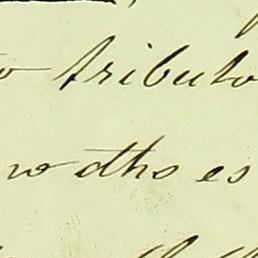 tributo
dho es